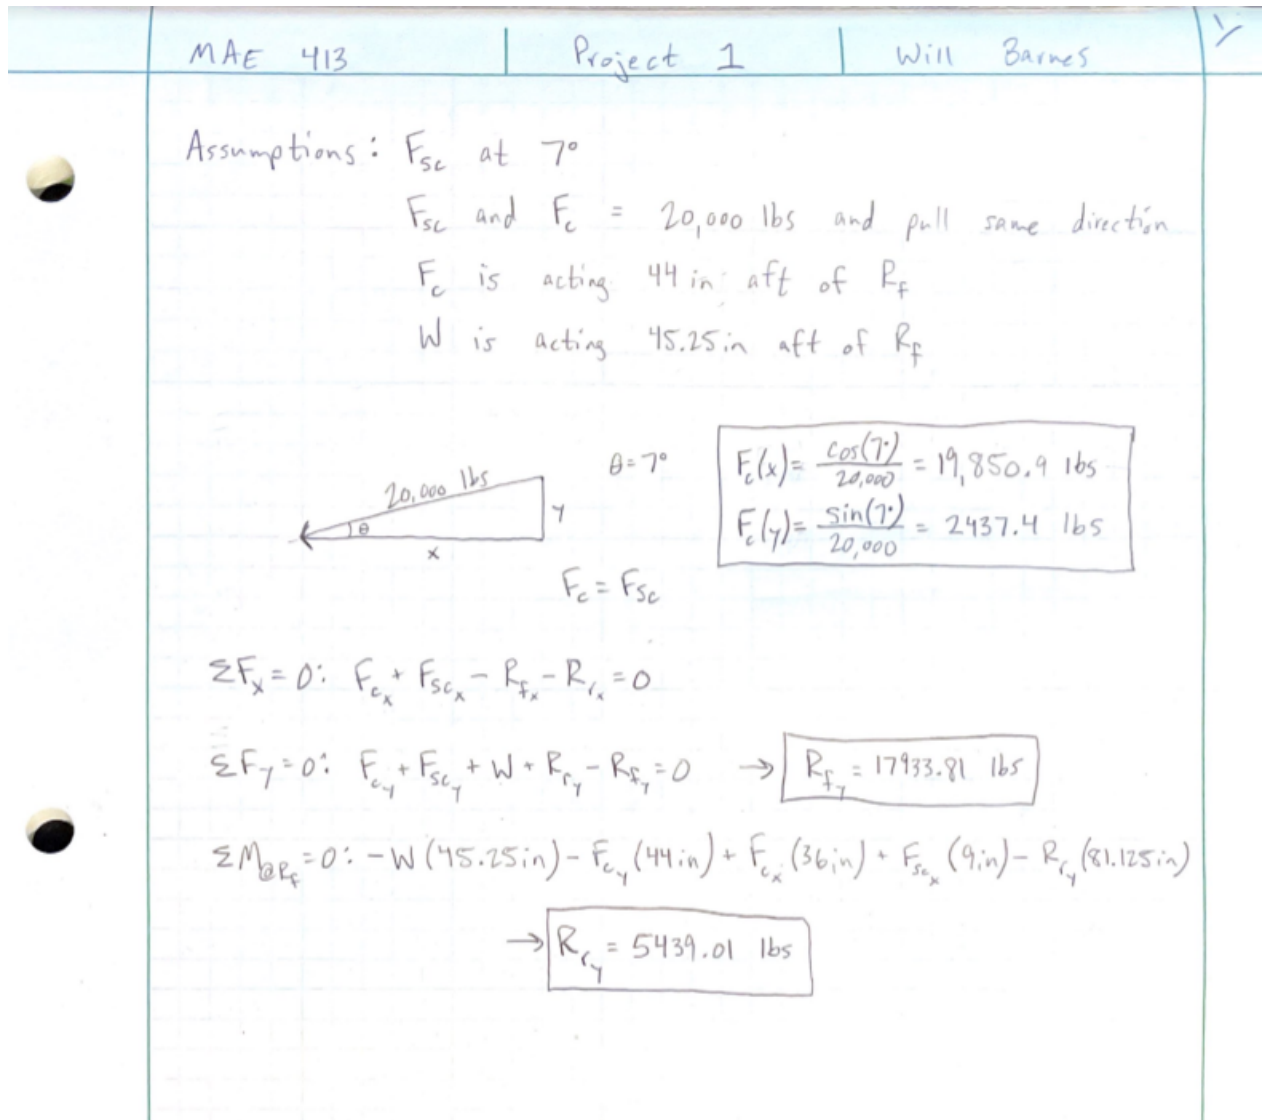 MAE 413 Project 1 Will Barnes 1/
Assumptions: F_sc at 7°
F_sc and F_c = 20,000 lbs and pull same direction
F_c is acting 44 in aft of R_f
W is acting 45.25in aft of R_f
θ=7°
F_c(x)= cos(7°)/20,000 = 19,850.9 lbs
20,000 lbs
θ
y
x
F_c(y)= sin(7°)/20,000 = 2437.4 lbs
F_c = F_sc
ΣF_x = 0: F_c_x + F_sc_x - R_f_x - R_r_x = 0
ΣF_y = 0: F_c_y + F_sc_y + W + R_r_y - R_f_y = 0 → R_f_y = 17933.81 lbs
ΣM_@R_f = 0: -W(45.25in) - F_c_y(44in) + F_c_x(36in) + F_sc_x(9in) - R_r_y(81.125in)
→ R_r_y = 5439.01 lbs